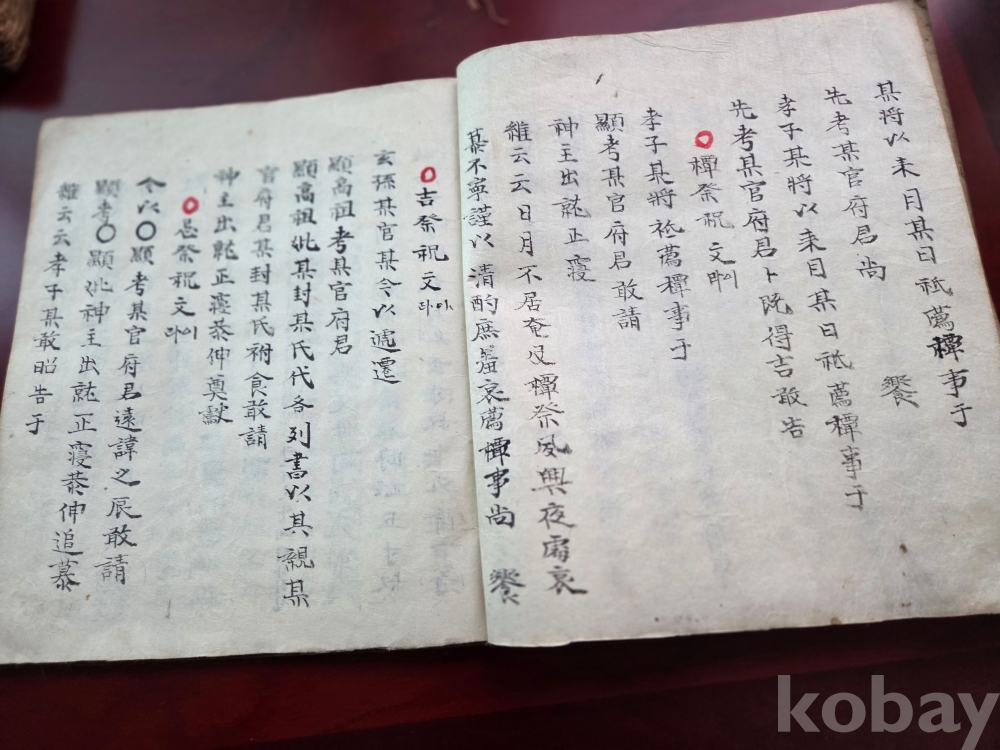 某將以來月某日祗薦禫事于
先考某官府君尙
饗
孝子某將以來月某日祗薦禫事于
先考某官府君卜旣得吉敢告
禫祭祝文
孝子某將祗薦禫事于
顯考某官府君敢請
神主出就正寢
維云云日月不居奄及禫祭夙興夜處哀
慕不寧謹以淸酌庶羞哀薦禫事尙
饗
吉祭祝文
玄孫某官某今以遞遷
顯高祖考某官府君
顯高祖妣某封某氏代各列書以其親某
官府君某封某氏祔食敢請
神主出就正寢恭伸奠獻
忌祭祝文
今以〇顯考某官府君遠諱之辰敢請
顯考〇顯妣神主出就正寢恭伸追慕
維云云孝子某敢昭告于
kobay